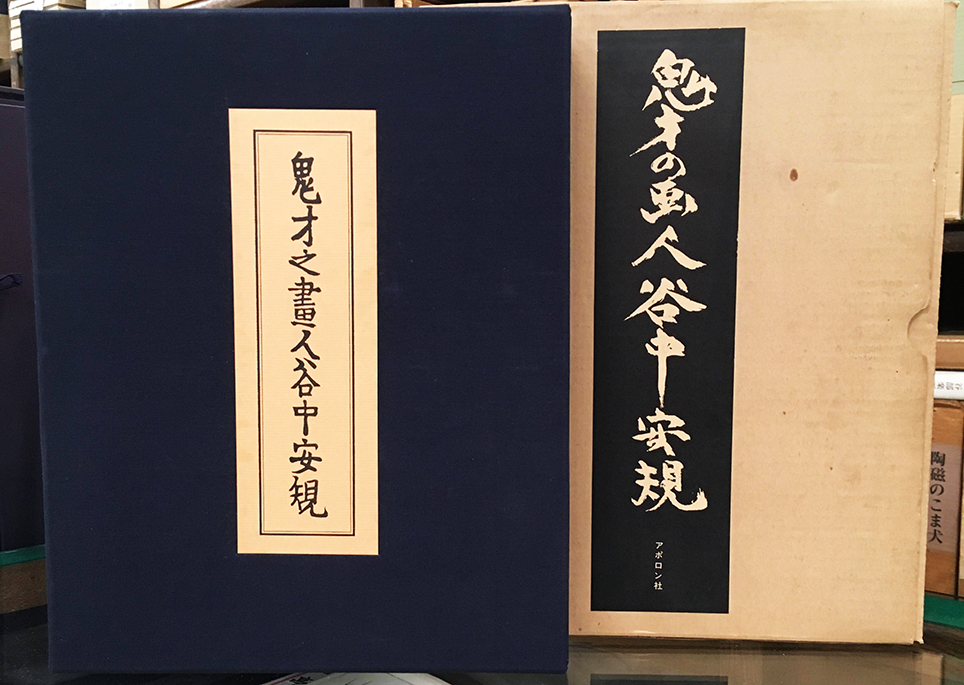 鬼才之畫人谷中安規
鬼才の画人谷中安規
アポロン社
陶磁のこま犬